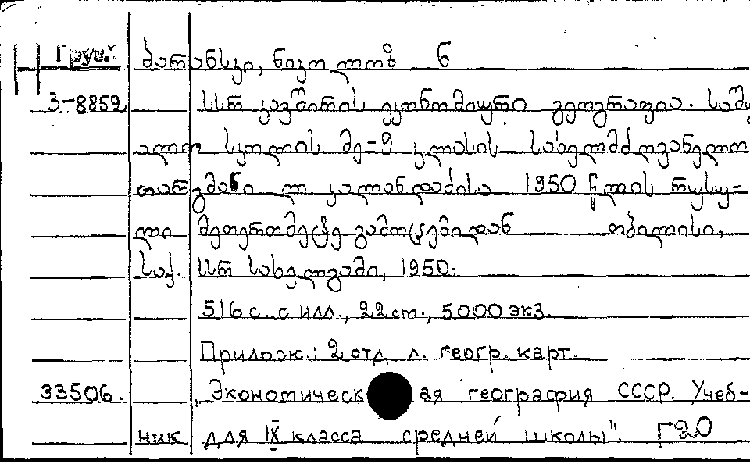 Груз. ბარანსკი, ნიკოლოზ 6
3-8859 სსრ კავშირის ეკონომიური გეოგრაფია. საშუ
ალო სკოლის მე-9 კლასის სახელმძღვანელო
თარგმანი ლ. კალანდაძისა 1950 წლის რუსუ-
ლი მეთერთმეტე გამოცემიდან თბილისი,
საქ. სსრ სახელგამი, 1950.
516 с. с илл., 22 см., 5000 экз.
Прилож.: 2 отд. л. геогр. карт.
33506. "Экономическая география СССР. Учеб-
ник для IX класса средней школы". Г20